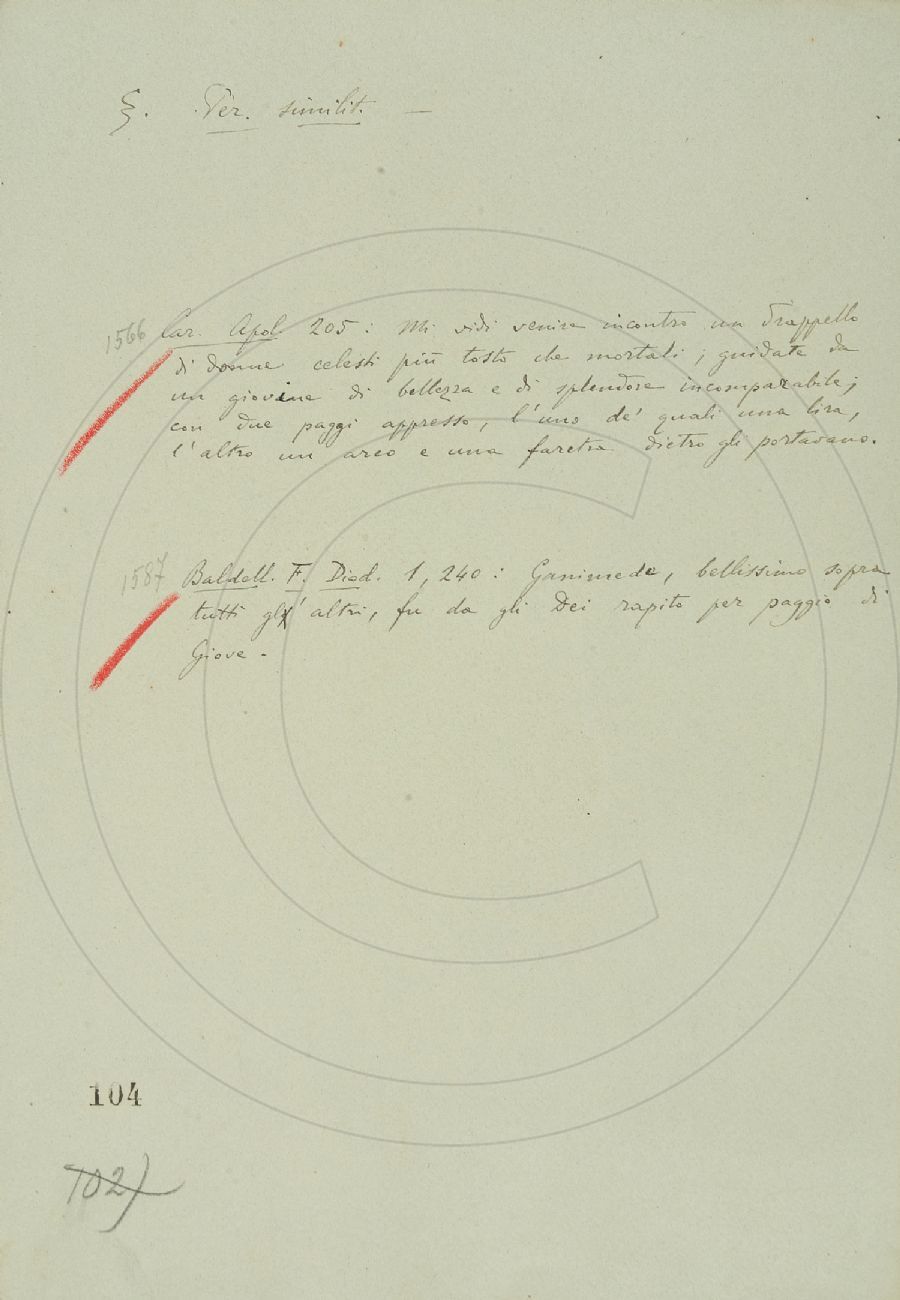 §. Per. similit. —
1566 Car. Apol. 205: Mi vidi venire incontro un drappello
di donne celesti più tosto che mortali; guidate da
un giovine di bellezza e di splendore incomparabile;
con due paggi appresso, l'uno de' quali una lira,
l'altro un arco e una faretra dietro gli portavano.
1587 Baldell. F. Diod. 1, 240: Ganimede, bellissimo sopra
tutti gl' altri, fu da gli Dei rapito per paggio di
Giove -
104
102)